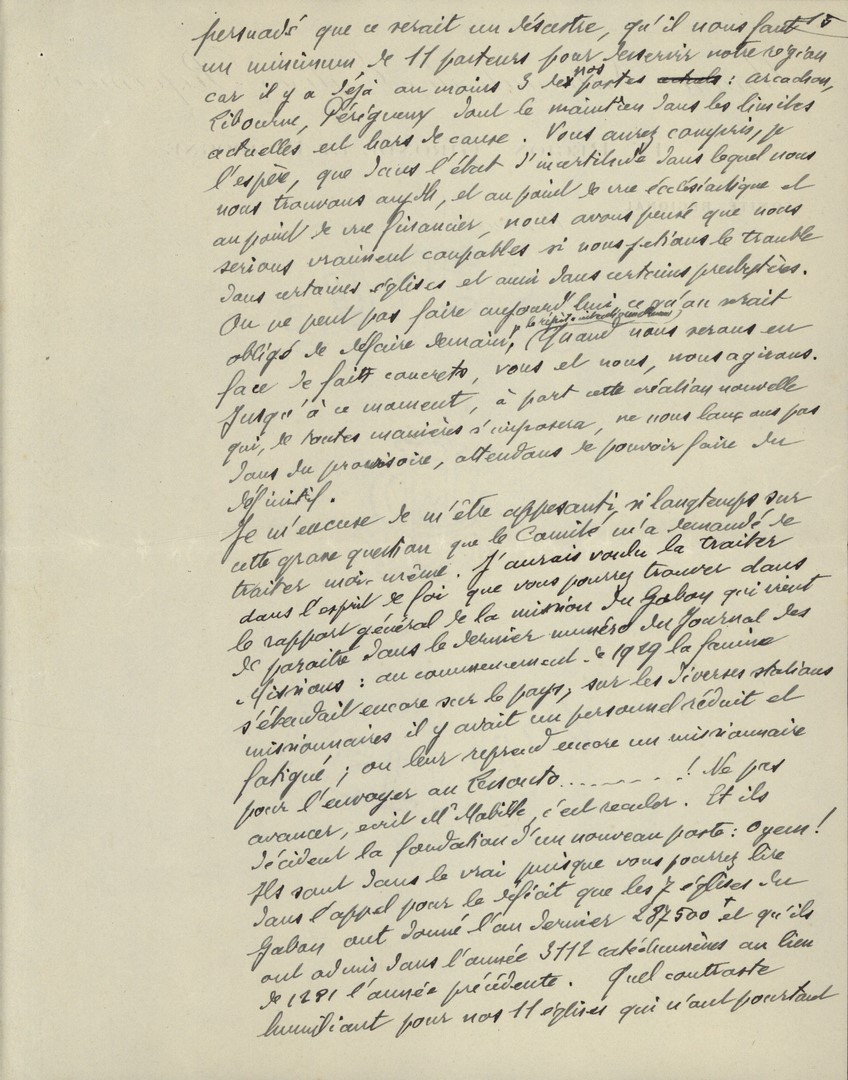 15
persuadé que ce serait un désastre, qu'il nous faut
un minimum de 11 pasteurs pour desservir notre région
car il y a déjà au moins 3 de nos postes actuels : Arcachon,
Libourne, Périgueux dont le maintien dans les limites
actuelles est hors de cause. Vous aurez compris, je
l'espère, que dans l'état d'incertitude dans lequel nous
nous trouvons aujdh, et au point de vue écclésiastique et
au point de vue financier, nous avons pensé que nous
serions vraiment coupables si nous jetions le trouble
dans certaines églises et aussi dans certains presbytères.
On ne peut pas faire aujourd'hui ce qu'on serait
obligé de défaire demain, Quand nous serons en
face de faits concrets, vous et nous, nous agirons.
Jusqu'à ce moment, à part cette création nouvelle
qui, de toutes manières s'imposera, ne nous lançons pas
dans du provisoire, attendons de pouvoir faire du
définitif.
Je m'excuse de m'être appesanti si longtemps sur
cette grave question que le Comité m'a demandé de
traiter moi-même. J'aurais voulu la traiter
dans l'esprit de foi que vous pourrez trouver dans
le rapport général de la mission du Gabon qui vient
de paraître dans le dernier numéro du Journal des
Missions : au commencement de 1929 la famine
s'étendait encore sur le pays, sur les diverses stations
missionnaires il y avait un personnel réduit et
fatigué ; on leur reprend encore un missionnaire
pour l'envoyer au Lessouto.........! Ne pas
avancer, écrit Mr Mabille, c'est reculer. Et ils
décident la fondation d'un nouveau poste : Oyem !
Ils sont dans le vrai puisque vous pourrez lire
dans l'appel pour le déficit que les 7 églises du
Gabon ont donné l'an dernier 287500 f et qu'ils
ont admis dans l'année 3112 catéchumènes au lieu
de 1291 l'année précédente. Quel contraste
humiliant pour nos 11 églises qui n'ont pourtant